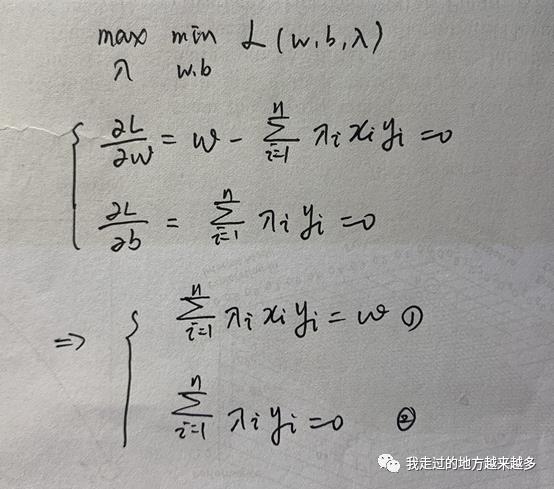 max min L(w.b,λ)
λ w.b
∂L/∂w = w - ∑_{i=1}^{n} λi xi yi = 0
∂L/∂b = ∑_{i=1}^{n} λi yi = 0
=> ∑_{i=1}^{n} λi xi yi = w ①
∑_{i=1}^{n} λi yi = 0 ②
我走过的地方越来越多